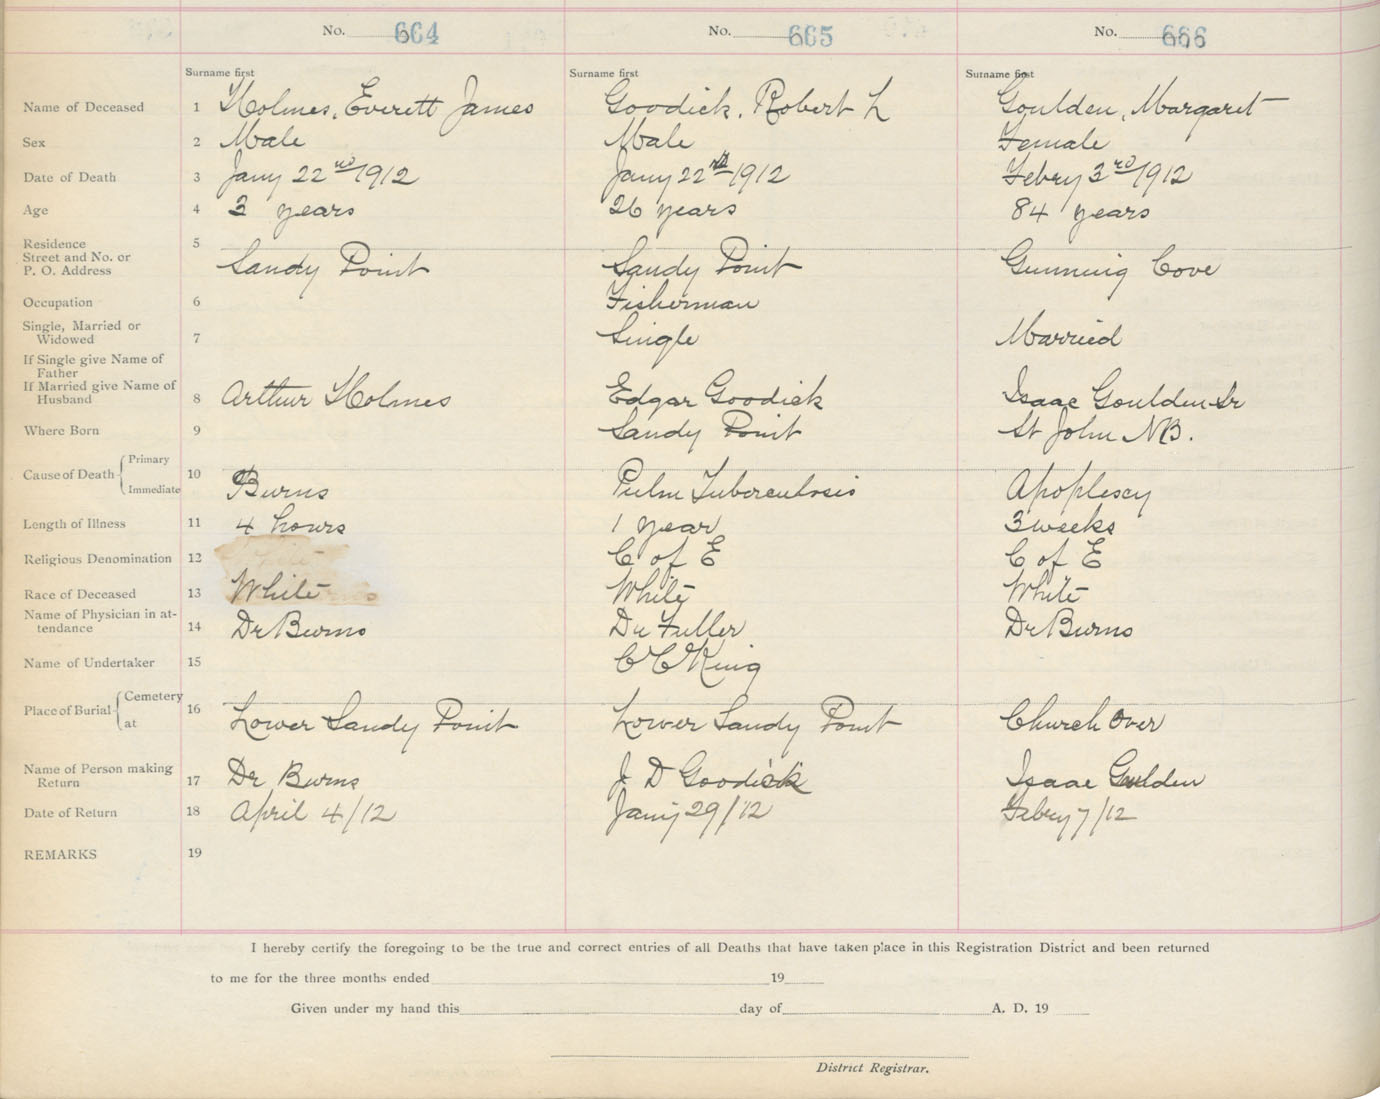 No. 664 No. 665 No. 666
Surname first Surname first Surname first
Name of Deceased 1 Holmes, Everett James Goodick, Robert L Goulden, Margaret
Sex 2 Male Male Female
Date of Death 3 Jany 22nd 1912 Jany 22nd 1912 Febry 3rd 1912
Age 4 3 years 26 years 84 years
Residence 5
Street and No. or
P. O. Address Sandy Point Sandy Point Gunning Cove
Occupation 6 Fisherman
Single, Married or
Widowed 7 Single Married
If Single give Name of
Father
If Married give Name of
Husband 8 Arthur Holmes Edgar Goodick Isaac Goulden Sr
Where Born 9 Sandy Point St John NB.
Cause of Death Primary 10
Immediate Burns Pulm Tuberculosis Apoplexy
Length of Illness 11 4 hours 1 year 3 weeks
Religious Denomination 12 C of E C of E
Race of Deceased 13 White White White
Name of Physician in at-
tendance 14 Dr Burns Dr Fuller Dr Burns
Name of Undertaker 15 C C King
Place of Burial Cemetery 16
at Lower Sandy Point Lower Sandy Point Church Over
Name of Person making
Return 17 Dr Burns J D Goodick Isaac Goulden
Date of Return 18 April 4/12 Jany 29/12 Febry 7/12
REMARKS 19
I hereby certify the foregoing to be the true and correct entries of all Deaths that have taken place in this Registration District and been returned
to me for the three months ended 19
Given under my hand this day of A. D. 19
District Registrar.